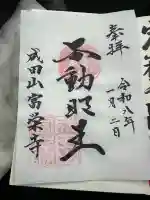 奉拝
令和八年
一月二日
不動明王
成田山富栄寺